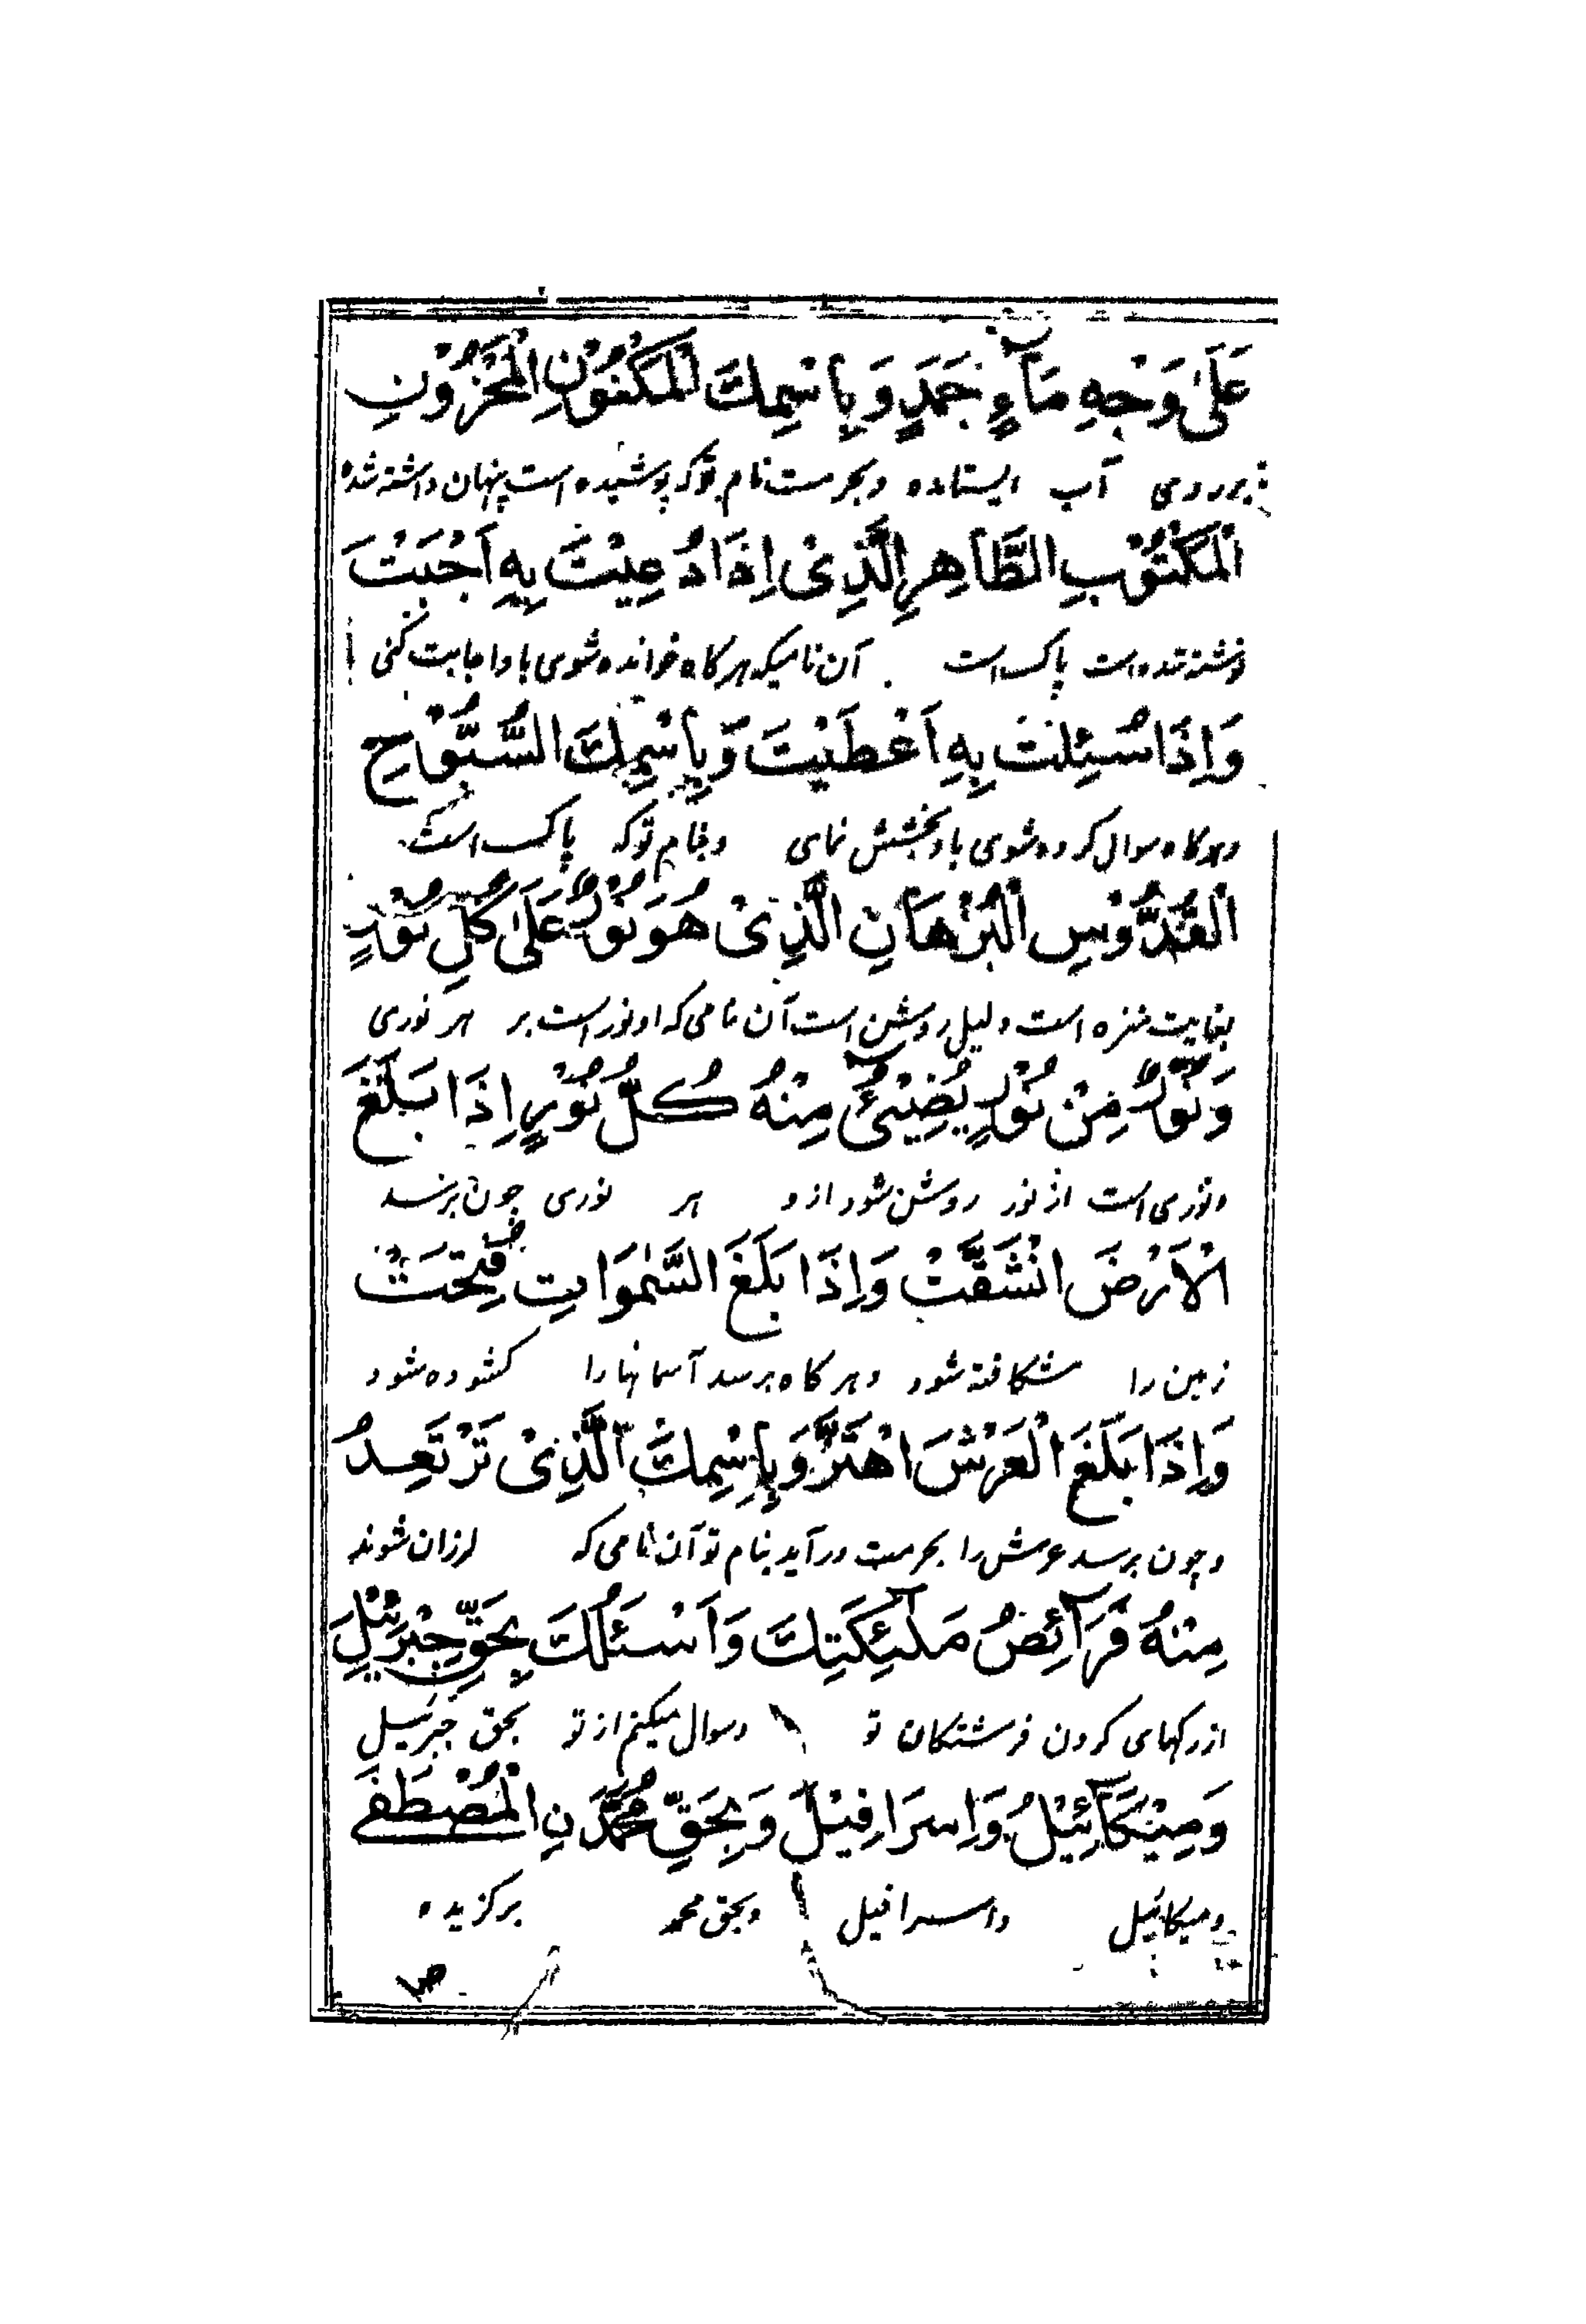 عَلٰى وَجْهِ مَآءٍ جَمَدٍ وَبِاسْمِكَ الْمَكْنُوْنِ الْمَخْزُوْنِ
بر روی آب ایستاده وبحرمت نام توکه پوشیده است پنهان داشته شده
الْمَكْتُوْبِ الطَّاهِرِ الَّذِىْ اِذَا دُعِيْتَ بِهٖ اَجَبْتَ
نوشته شده است پاک است آن نامیکه هرکاه خوانده شوی باو اجابت کنی
وَاِذَا سُئِلْتَ بِهٖ اَعْطَيْتَ وَبِاسْمِكَ السُّبُّوْحِ
وهرکاه سوال کرده شوی باو بخشش نمای وبنام توکه پاک است
الْقُدُّوْسِ الْبُرْهَانِ الَّذِىْ هُوَ نُوْرٌ عَلٰى كُلِّ نُوْرٍ
بغایت منزه است دلیل روشن است آن نامی که او نور است بر هر نوری
وَنُوْرٌ مِنْ نُوْرٍ يُضِيْئُ مِنْهُ كُلُّ نُوْرٍ اِذَا بَلَغَ
ونوری است از نور روشن شود ازو هر نوری چون برسد
الْاَرْضَ انْشَقَّتْ وَاِذَا بَلَغَ السَّمٰوَاتِ فُتِحَتْ
زمین را شکافته شود وهرکاه برسد آسمانها را کشوده شود
وَاِذَا بَلَغَ الْعَرْشَ اهْتَزَّ وَبِاسْمِكَ الَّذِىْ تَرْتَعِدُ
وچون برسد عرش را بحرمت درآید بنام تو آن نامی که لرزان شوند
مِنْهُ فَرَآئِصُ مَلٰئِكَتِكَ وَاَسْئَلُكَ بِحَقِّ جِبْرَئِيْلَ
از رکهای کردن فرشتکان تو وسوال میکنم از تو بحق جبرئیل
وَمِيْكَآئِيْلَ وَاِسْرَافِيْلَ وَبِحَقِّ مُحَمَّدٍ نِ الْمُصْطَفٰى
ومیکائیل واسرافیل وبحق محمد برکزیده